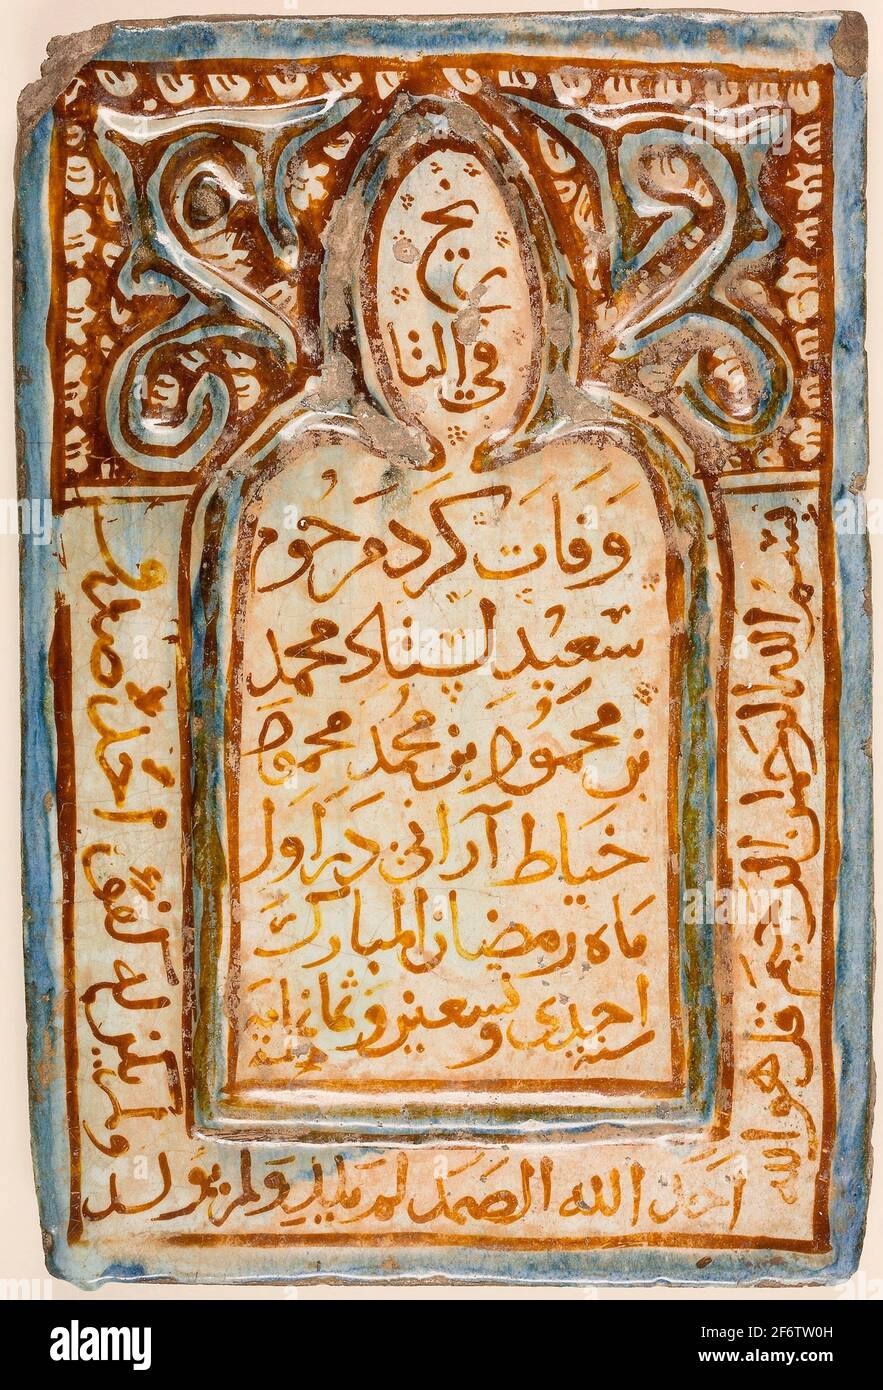 في التاريخ
وفات کرد مرحوم
سعید محمد
بن محمود بن محمد محمود
خیاط آرانی در اول
ماه رمضان المبارک
سنه احدی و تسعین و ثمانمایه
بسم الله الرحمن الرحیم قل هو الله
احد الله الصمد لم یلد ولم یولد
ولم یکن له کفوا احد صدق
alamy
Image ID: 2F6TW0H
www.alamy.com